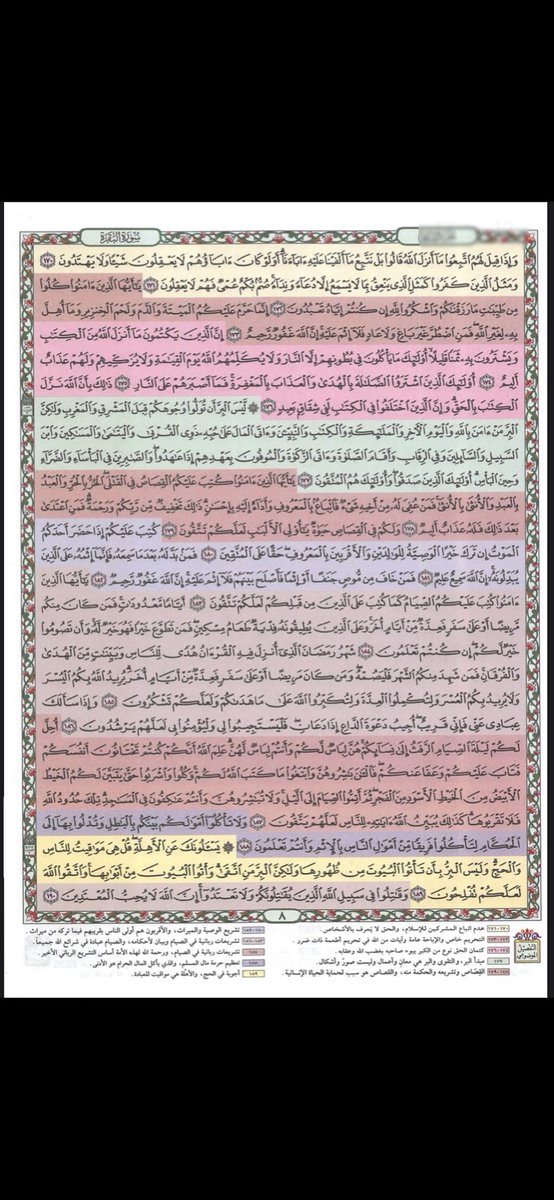 سورة البقرة
وَإِذَا قِيلَ لَهُمُ اتَّبِعُوا مَا أَنزَلَ اللَّهُ قَالُوا بَلْ نَتَّبِعُ مَا أَلْفَيْنَا عَلَيْهِ ءَابَاءَنَا أَوَلَوْ كَانَ ءَابَاؤُهُمْ لَا يَعْقِلُونَ شَيْئًا وَلَا يَهْتَدُونَ ١٧٠
وَمَثَلُ الَّذِينَ كَفَرُوا كَمَثَلِ الَّذِي يَنْعِقُ بِمَا لَا يَسْمَعُ إِلَّا دُعَاءً وَنِدَاءً صُمٌّ بُكْمٌ عُمْيٌ فَهُمْ لَا يَعْقِلُونَ ١٧١ يَا أَيُّهَا الَّذِينَ ءَامَنُوا كُلُوا
مِن طَيِّبَاتِ مَا رَزَقْنَاكُمْ وَاشْكُرُوا لِلَّهِ إِن كُنتُمْ إِيَّاهُ تَعْبُدُونَ ١٧٢ إِنَّمَا حَرَّمَ عَلَيْكُمُ الْمَيْتَةَ وَالدَّمَ وَلَحْمَ الْخِنزِيرِ وَمَا أُهِلَّ
بِهِ لِغَيْرِ اللَّهِ فَمَنِ اضْطُرَّ غَيْرَ بَاغٍ وَلَا عَادٍ فَلَا إِثْمَ عَلَيْهِ إِنَّ اللَّهَ غَفُورٌ رَّحِيمٌ ١٧٣ إِنَّ الَّذِينَ يَكْتُمُونَ مَا أَنزَلَ اللَّهُ مِنَ الْكِتَابِ
وَيَشْتَرُونَ بِهِ ثَمَنًا قَلِيلًا أُولَٰئِكَ مَا يَأْكُلُونَ فِي بُطُونِهِمْ إِلَّا النَّارَ وَلَا يُكَلِّمُهُمُ اللَّهُ يَوْمَ الْقِيَامَةِ وَلَا يُزَكِّيهِمْ وَلَهُمْ عَذَابٌ
أَلِيمٌ ١٧٤ أُولَٰئِكَ الَّذِينَ اشْتَرَوُا الضَّلَالَةَ بِالْهُدَىٰ وَالْعَذَابَ بِالْمَغْفِرَةِ فَمَا أَصْبَرَهُمْ عَلَى النَّارِ ١٧٥ ذَٰلِكَ بِأَنَّ اللَّهَ نَزَّلَ
الْكِتَابَ بِالْحَقِّ وَإِنَّ الَّذِينَ اخْتَلَفُوا فِي الْكِتَابِ لَفِي شِقَاقٍ بَعِيدٍ ١٧٦ ۞ لَّيْسَ الْبِرَّ أَن تُوَلُّوا وُجُوهَكُمْ قِبَلَ الْمَشْرِقِ وَالْمَغْرِبِ وَلَٰكِنَّ
الْبِرَّ مَنْ ءَامَنَ بِاللَّهِ وَالْيَوْمِ الْآخِرِ وَالْمَلَائِكَةِ وَالْكِتَابِ وَالنَّبِيِّينَ وَءَاتَى الْمَالَ عَلَىٰ حُبِّهِ ذَوِي الْقُرْبَىٰ وَالْيَتَامَىٰ وَالْمَسَاكِينَ وَابْنَ
السَّبِيلِ وَالسَّائِلِينَ وَفِي الرِّقَابِ وَأَقَامَ الصَّلَاةَ وَءَاتَى الزَّكَاةَ وَالْمُوفُونَ بِعَهْدِهِمْ إِذَا عَاهَدُوا وَالصَّابِرِينَ فِي الْبَأْسَاءِ وَالضَّرَّاءِ
وَحِينَ الْبَأْسِ أُولَٰئِكَ الَّذِينَ صَدَقُوا وَأُولَٰئِكَ هُمُ الْمُتَّقُونَ ١٧٧ يَا أَيُّهَا الَّذِينَ ءَامَنُوا كُتِبَ عَلَيْكُمُ الْقِصَاصُ فِي الْقَتْلَى الْحُرُّ بِالْحُرِّ وَالْعَبْدُ
بِالْعَبْدِ وَالْأُنثَىٰ بِالْأُنثَىٰ فَمَنْ عُفِيَ لَهُ مِنْ أَخِيهِ شَيْءٌ فَاتِّبَاعٌ بِالْمَعْرُوفِ وَأَدَاءٌ إِلَيْهِ بِإِحْسَانٍ ذَٰلِكَ تَخْفِيفٌ مِّن رَّبِّكُمْ وَرَحْمَةٌ فَمَنِ اعْتَدَىٰ
بَعْدَ ذَٰلِكَ فَلَهُ عَذَابٌ أَلِيمٌ ١٧٨ وَلَكُمْ فِي الْقِصَاصِ حَيَاةٌ يَا أُولِي الْأَلْبَابِ لَعَلَّكُمْ تَتَّقُونَ ١٧٩ كُتِبَ عَلَيْكُمْ إِذَا حَضَرَ أَحَدَكُمُ
الْمَوْتُ إِن تَرَكَ خَيْرًا الْوَصِيَّةُ لِلْوَالِدَيْنِ وَالْأَقْرَبِينَ بِالْمَعْرُوفِ حَقًّا عَلَى الْمُتَّقِينَ ١٨٠ فَمَن بَدَّلَهُ بَعْدَمَا سَمِعَهُ فَإِنَّمَا إِثْمُهُ عَلَى الَّذِينَ
يُبَدِّلُونَهُ إِنَّ اللَّهَ سَمِيعٌ عَلِيمٌ ١٨١ فَمَنْ خَافَ مِن مُّوصٍ جَنَفًا أَوْ إِثْمًا فَأَصْلَحَ بَيْنَهُمْ فَلَا إِثْمَ عَلَيْهِ إِنَّ اللَّهَ غَفُورٌ رَّحِيمٌ ١٨٢ يَا أَيُّهَا الَّذِينَ
ءَامَنُوا كُتِبَ عَلَيْكُمُ الصِّيَامُ كَمَا كُتِبَ عَلَى الَّذِينَ مِن قَبْلِكُمْ لَعَلَّكُمْ تَتَّقُونَ ١٨٣ أَيَّامًا مَّعْدُودَاتٍ فَمَن كَانَ مِنكُم
مَّرِيضًا أَوْ عَلَىٰ سَفَرٍ فَعِدَّةٌ مِّنْ أَيَّامٍ أُخَرَ وَعَلَى الَّذِينَ يُطِيقُونَهُ فِدْيَةٌ طَعَامُ مِسْكِينٍ فَمَن تَطَوَّعَ خَيْرًا فَهُوَ خَيْرٌ لَّهُ وَأَن تَصُومُوا
خَيْرٌ لَّكُمْ إِن كُنتُمْ تَعْلَمُونَ ١٨٤ شَهْرُ رَمَضَانَ الَّذِي أُنزِلَ فِيهِ الْقُرْءَانُ هُدًى لِّلنَّاسِ وَبَيِّنَاتٍ مِّنَ الْهُدَىٰ
وَالْفُرْقَانِ فَمَن شَهِدَ مِنكُمُ الشَّهْرَ فَلْيَصُمْهُ وَمَن كَانَ مَرِيضًا أَوْ عَلَىٰ سَفَرٍ فَعِدَّةٌ مِّنْ أَيَّامٍ أُخَرَ يُرِيدُ اللَّهُ بِكُمُ الْيُسْرَ
وَلَا يُرِيدُ بِكُمُ الْعُسْرَ وَلِتُكْمِلُوا الْعِدَّةَ وَلِتُكَبِّرُوا اللَّهَ عَلَىٰ مَا هَدَاكُمْ وَلَعَلَّكُمْ تَشْكُرُونَ ١٨٥ وَإِذَا سَأَلَكَ
عِبَادِي عَنِّي فَإِنِّي قَرِيبٌ أُجِيبُ دَعْوَةَ الدَّاعِ إِذَا دَعَانِ فَلْيَسْتَجِيبُوا لِي وَلْيُؤْمِنُوا بِي لَعَلَّهُمْ يَرْشُدُونَ ١٨٦ أُحِلَّ
لَكُمْ لَيْلَةَ الصِّيَامِ الرَّفَثُ إِلَىٰ نِسَائِكُمْ هُنَّ لِبَاسٌ لَّكُمْ وَأَنتُمْ لِبَاسٌ لَّهُنَّ عَلِمَ اللَّهُ أَنَّكُمْ كُنتُمْ تَخْتَانُونَ أَنفُسَكُمْ
فَتَابَ عَلَيْكُمْ وَعَفَا عَنكُمْ فَالْآنَ بَاشِرُوهُنَّ وَابْتَغُوا مَا كَتَبَ اللَّهُ لَكُمْ وَكُلُوا وَاشْرَبُوا حَتَّىٰ يَتَبَيَّنَ لَكُمُ الْخَيْطُ
الْأَبْيَضُ مِنَ الْخَيْطِ الْأَسْوَدِ مِنَ الْفَجْرِ ثُمَّ أَتِمُّوا الصِّيَامَ إِلَى اللَّيْلِ وَلَا تُبَاشِرُوهُنَّ وَأَنتُمْ عَاكِفُونَ فِي الْمَسَاجِدِ تِلْكَ حُدُودُ اللَّهِ
فَلَا تَقْرَبُوهَا كَذَٰلِكَ يُبَيِّنُ اللَّهُ ءَايَاتِهِ لِلنَّاسِ لَعَلَّهُمْ يَتَّقُونَ ١٨٧ وَلَا تَأْكُلُوا أَمْوَالَكُم بَيْنَكُم بِالْبَاطِلِ وَتُدْلُوا بِهَا إِلَى
الْحُكَّامِ لِتَأْكُلُوا فَرِيقًا مِّنْ أَمْوَالِ النَّاسِ بِالْإِثْمِ وَأَنتُمْ تَعْلَمُونَ ١٨٨ ۞ يَسْأَلُونَكَ عَنِ الْأَهِلَّةِ قُلْ هِيَ مَوَاقِيتُ لِلنَّاسِ
وَالْحَجِّ وَلَيْسَ الْبِرُّ بِأَن تَأْتُوا الْبُيُوتَ مِن ظُهُورِهَا وَلَٰكِنَّ الْبِرَّ مَنِ اتَّقَىٰ وَأْتُوا الْبُيُوتَ مِنْ أَبْوَابِهَا وَاتَّقُوا اللَّهَ
لَعَلَّكُمْ تُفْلِحُونَ ١٨٩ وَقَاتِلُوا فِي سَبِيلِ اللَّهِ الَّذِينَ يُقَاتِلُونَكُمْ وَلَا تَعْتَدُوا إِنَّ اللَّهَ لَا يُحِبُّ الْمُعْتَدِينَ ١٩٠
٨
التفصيل الموضوعي
١٧٠-١٧١ عدم اتباع المشركين للإسلام، والحق لا يعرف بالأشخاص.
١٧٢-١٧٣ التحريم خاص والإباحة عامة وآيات من الله في تحريم أطعمة ذات ضرر.
١٧٤-١٧٦ كتمان الحق نوع من الكبر يبوء صاحبه بغضب الله وعقابه.
١٧٧ مبدأ البر، والتقوى والبر هي معانٍ وأعمال وليست صورٌ وأشكال.
١٧٨-١٧٩ القصاص وتشريعه والحكمة منه، والقصاص هو سبب لحماية الحياة الإنسانية.
١٨٠-١٨٢ تشريع الوصية والميراث، والأقربون هم أولى الناس بقريبهم فيما تركه من ميراث.
١٨٣-١٨٦ تشريعات ربانية في الصيام وبيان لأحكامه، والصيام عبادة في شرائع الله جميعاً.
١٨٧ تشريعات ربانية في الصيام، ورحمة الله لهذه الأمة أساس التشريع الرباني الأخير.
١٨٨ تعظيم حرمة مال المسلم، والذي يأكل المال الحرام هو الأدنى.
١٨٩ أجوبة في الحج، والأهلة هي مواقيت للعبادة.